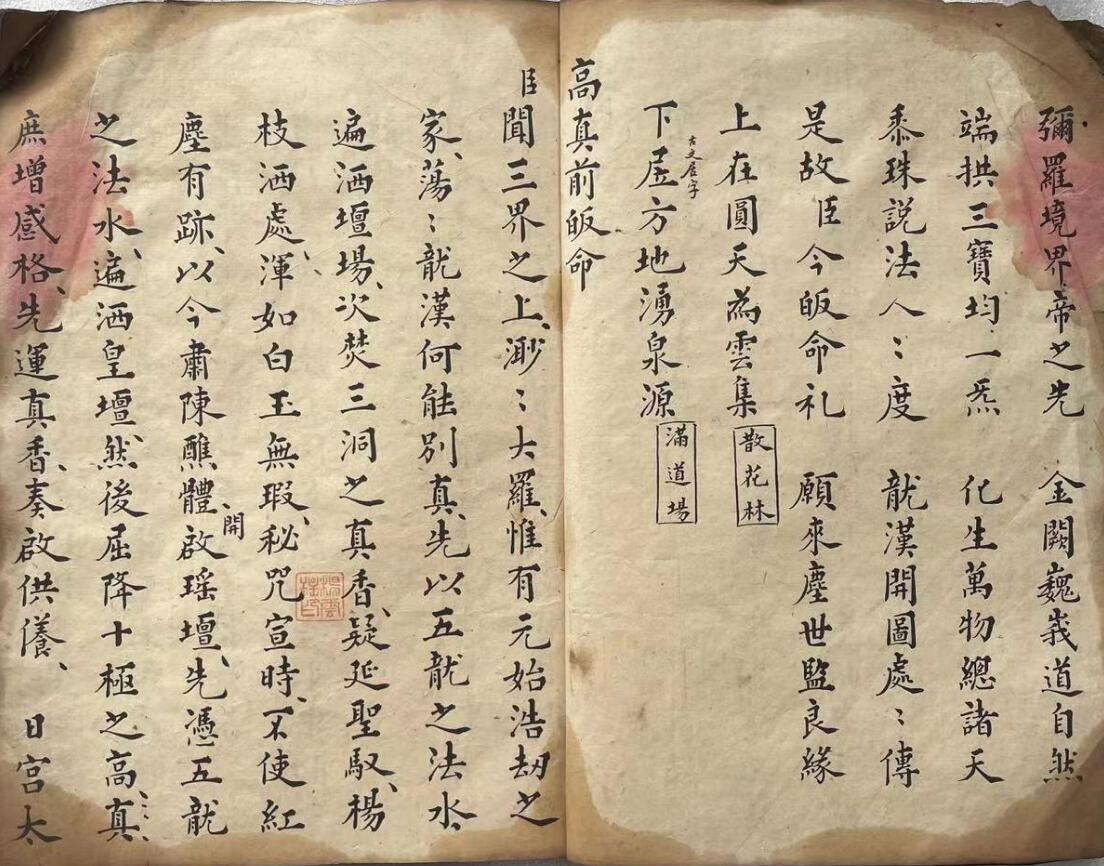 彌羅境界帝之先　金闕巍峩道自然
端拱三寶均一炁　化生萬物總諸天
黍珠説法人〻度　龍漢開圖處〻傳
是故臣今皈命礼　願來塵世監良緣
上在圓天為雲集　散花林
古文居字
下凥方地湧泉源　滿道場
高真前皈命
臣聞三界之上、渺〻大羅、惟有元始浩刼之
家、蕩〻龍漢何能別真、先以五龍之法水、
遍洒壇場、次焚三洞之真香、疑延聖馭、楊
枝洒處、渾如白玉無瑕、秘咒宣時、不使紅
塵有跡、以今肅陳醮體、開啟瑶壇、先憑五龍
之法水、遍洒皇壇、然後屈降十極之高真、
庶增感格、先運真香、奏啟供養、　日宮太